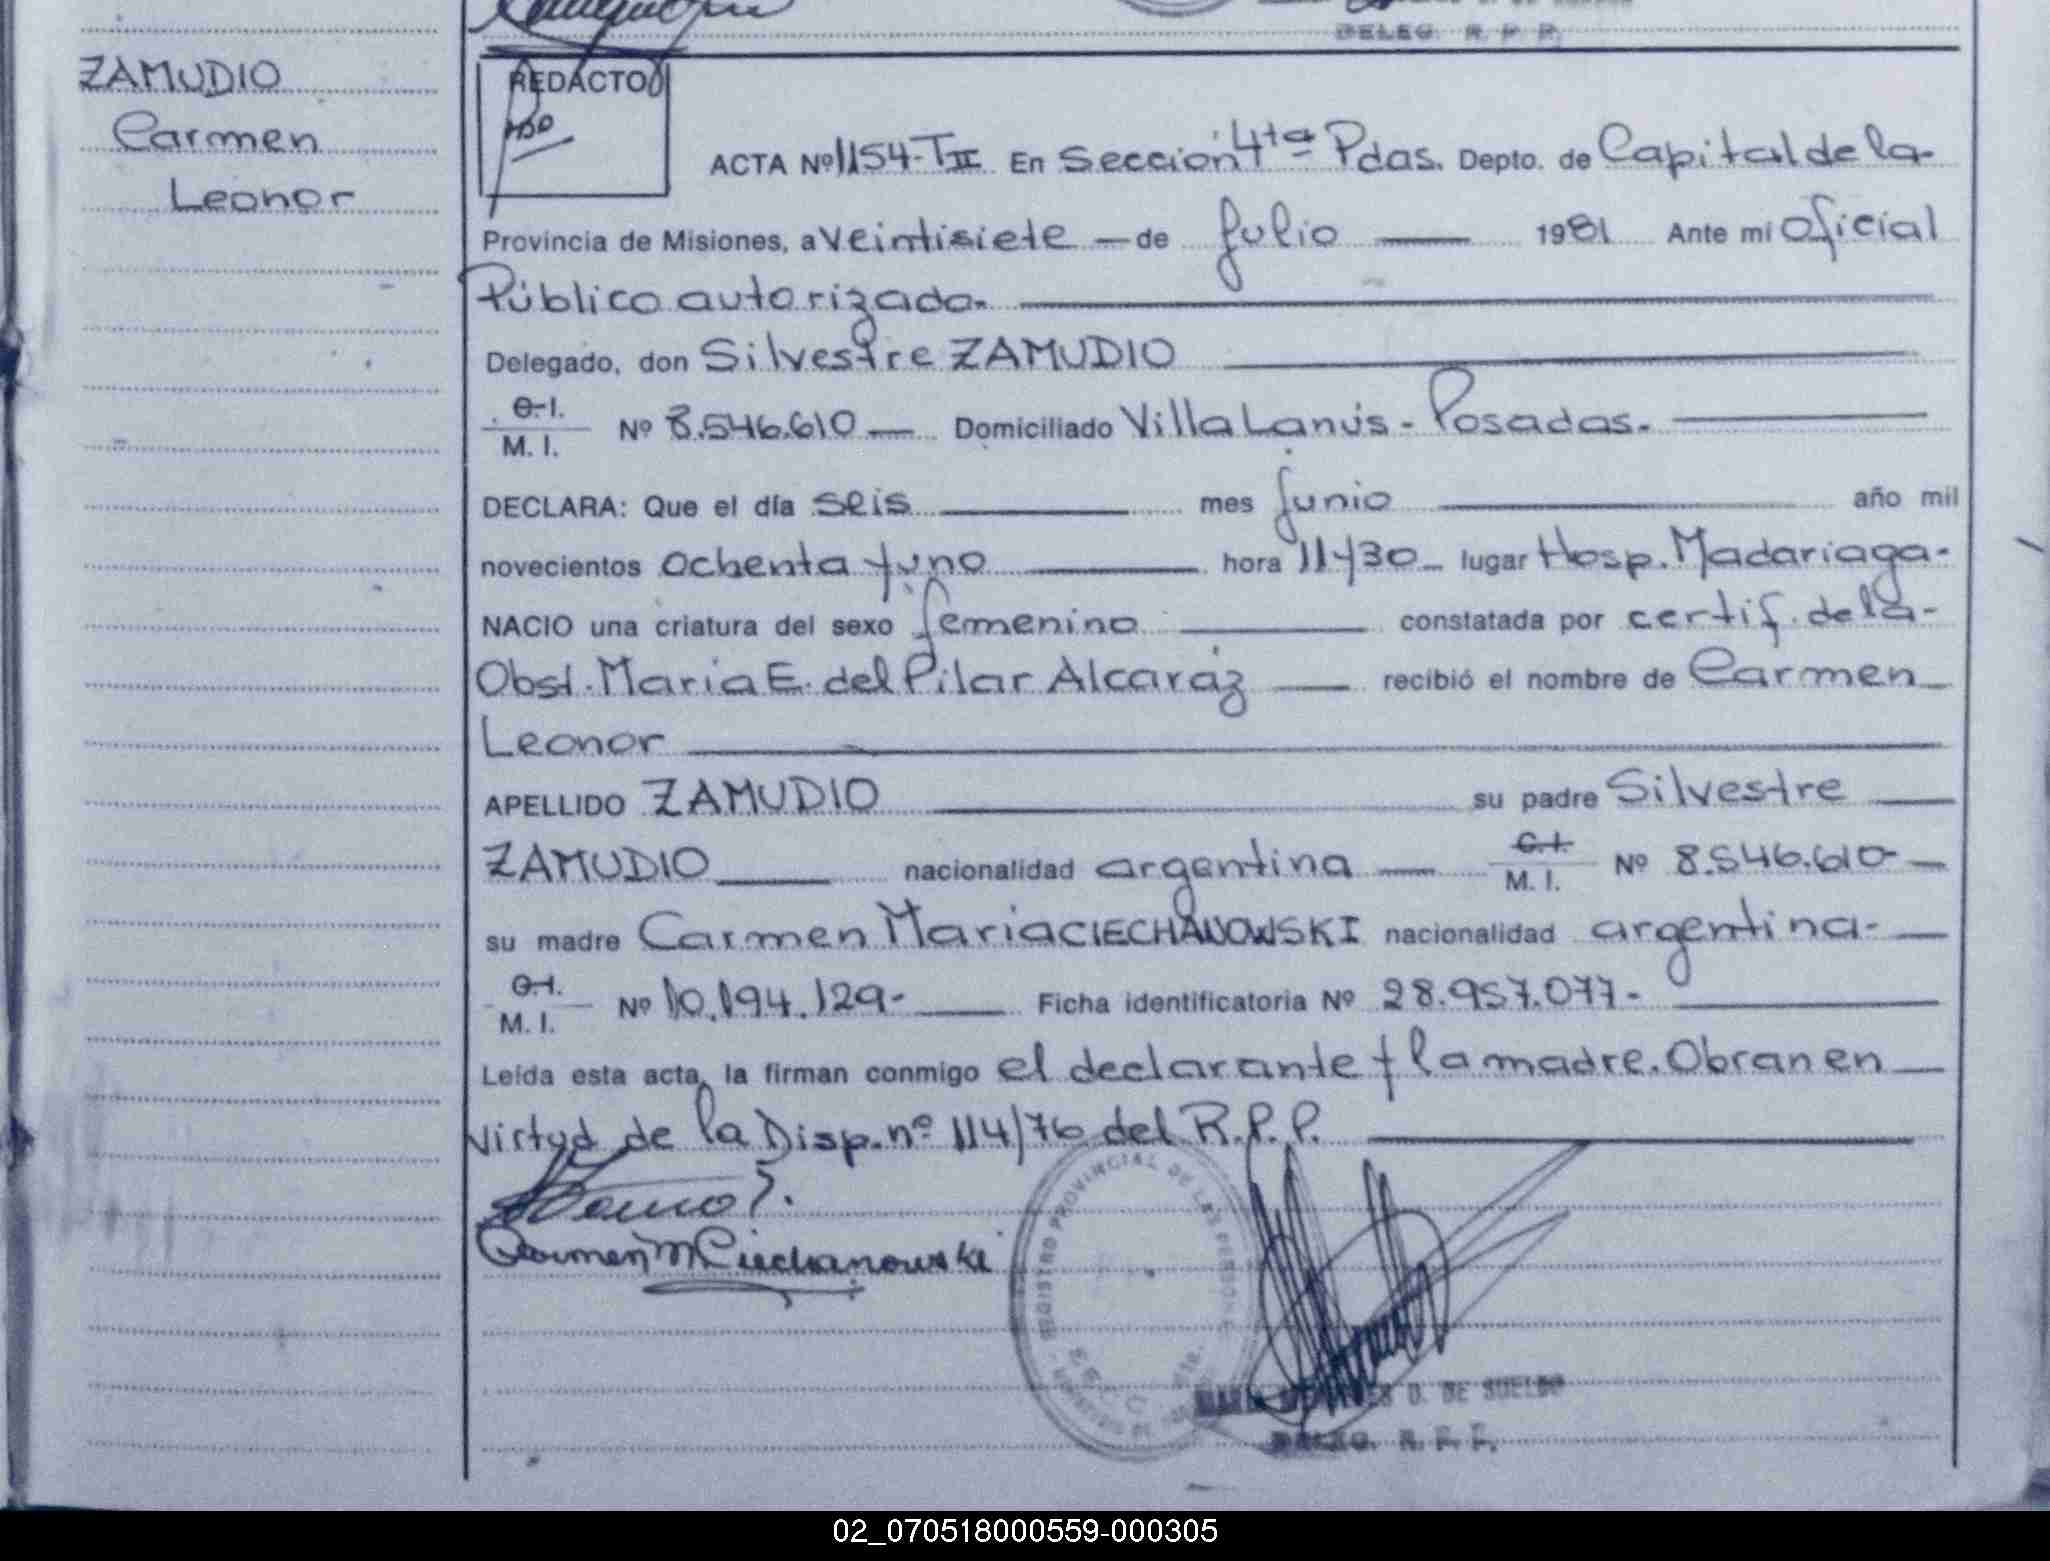 DELEG. R. P. P.
ZAMUDIO
Carmen
Leonor
REDACTO
ACTA Nº 1154-TII En Sección 4ta Pdas. Depto. de Capital de la-
Provincia de Misiones, a veintisiete — de Julio — 1981 Ante mí Oficial
Público autorizado.
Delegado, don Silvestre ZAMUDIO
C.I.
M. I. Nº 8.546.610 — Domiciliado Villa Lanús - Posadas.
DECLARA: Que el día seis — mes Junio — año mil
novecientos ochenta y uno — hora 11y30 - lugar Hosp. Madariaga-
NACIO una criatura del sexo femenino — constatada por certif. de la-
Obst. María E. del Pilar Alcaráz — recibió el nombre de Carmen
Leonor
APELLIDO ZAMUDIO — su padre Silvestre
ZAMUDIO — nacionalidad argentina — C.I.
M. I. Nº 8.546.610 —
su madre Carmen María CIECHANOWSKI nacionalidad argentina-
C.I.
M. I. Nº 10.194.129- — Ficha identificatoria Nº 28.957.077-
Leída esta acta, la firman conmigo el declarante y la madre. Obran en
virtud de la Disp. nº 114/76 del R.P.P.
Carmen M Ciechanowski
REGISTRO PROVINCIAL DE LAS PERSONAS
D. DE SUELDO
DELEG. R. P. P.
02_070518000559-000305